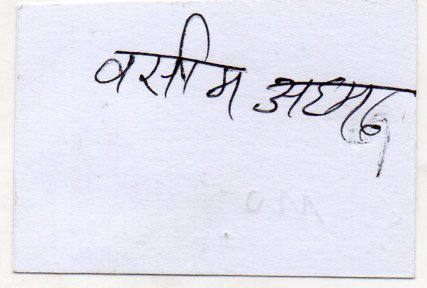 वसीम अहमद